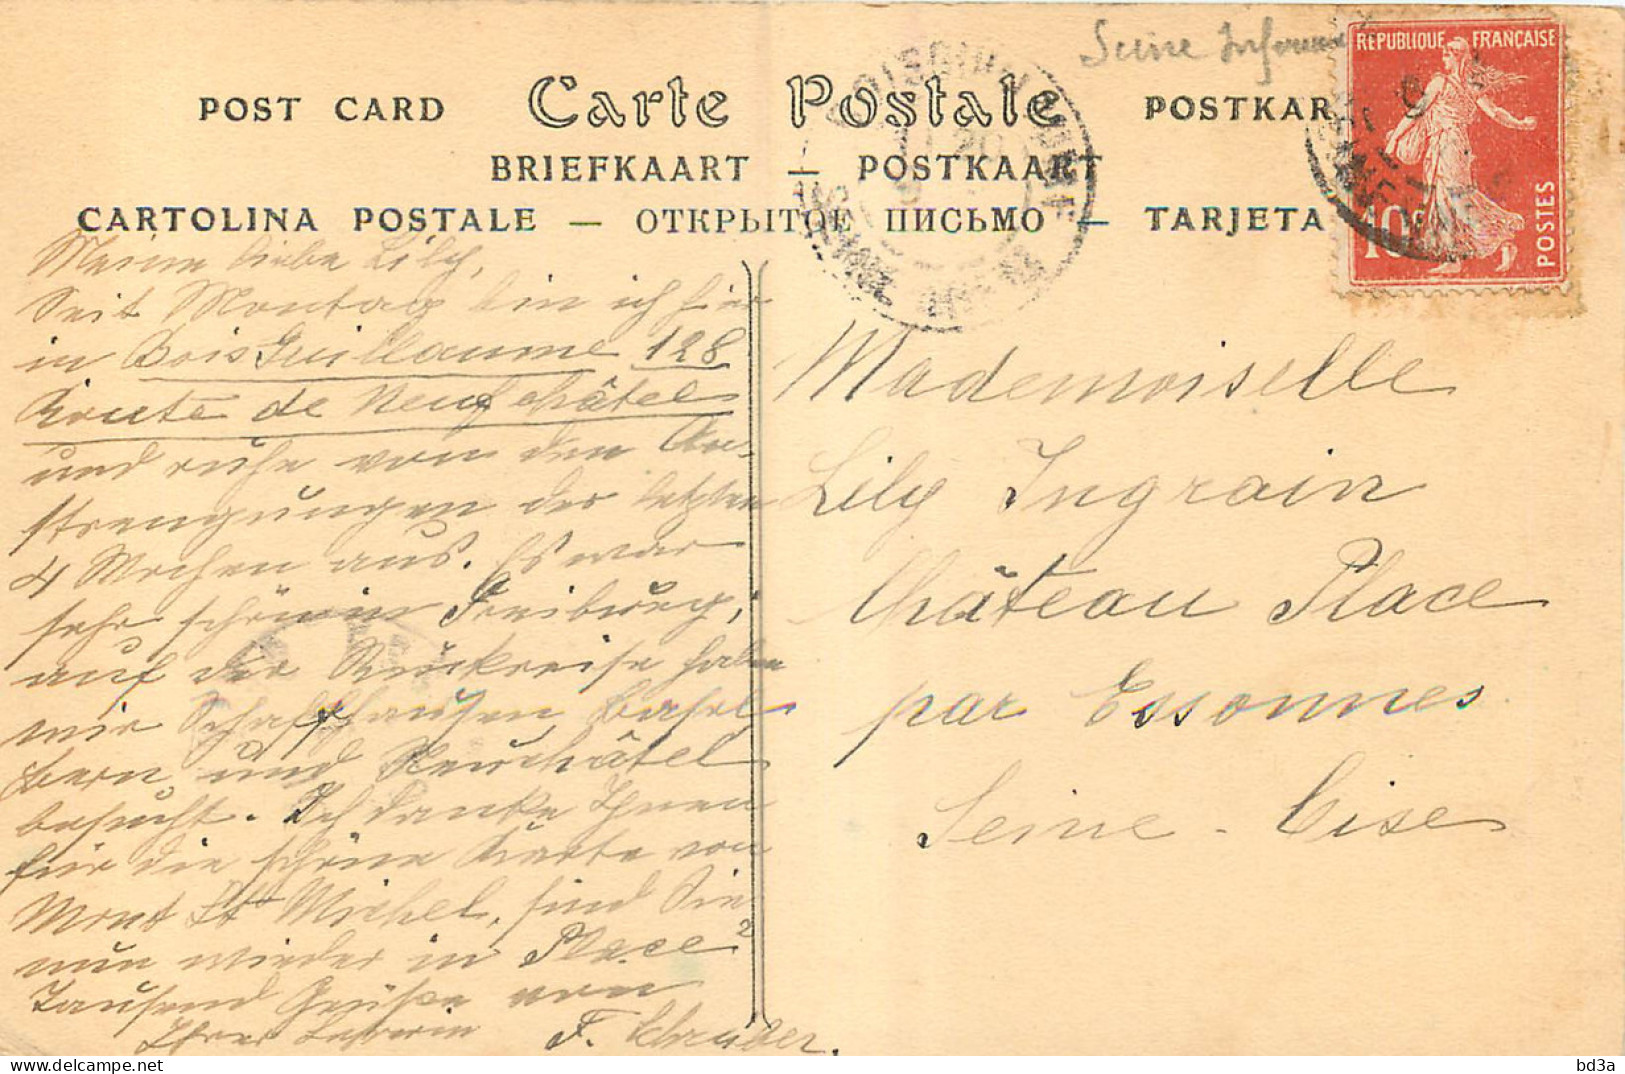 Seine Inf
POST CARD Carte Postale POSTKAR
BRIEFKAART — POSTKAART
CARTOLINA POSTALE — ОТКРЫТОЕ ПИСЬМО — TARJETA
REPUBLIQUE FRANÇAISE
10c
POSTES
Meine liebe Lily,
Seit Montag bin ich hier
in BoisGuillaume 128
Route de Neufchâtel
und ruhe von den An-
strengungen der letzten
4 Wochen aus. Es war
sehr schön in Freiburg,
auf der Rückreise haben
wir Schaffhausen Basel
Bern und Neuchâtel
besucht. Ich danke Ihnen
für die schöne Karte von
Mont St Michel, sind Sie
nun wieder in Place?
Tausend Grüße von
Ihrer Lehrerin F. Schruber.
Mademoiselle
Lily Ingrain
Château Place
par Essonnes
Seine - Oise
bd3a